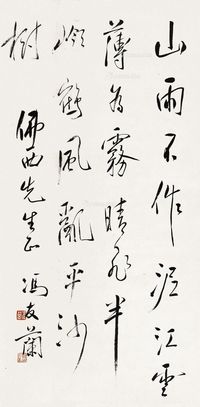 山雨不作泥江雲
薄为霧晴飛半
岭鶴風亂平沙
樹
佛西先生正
馮友蘭